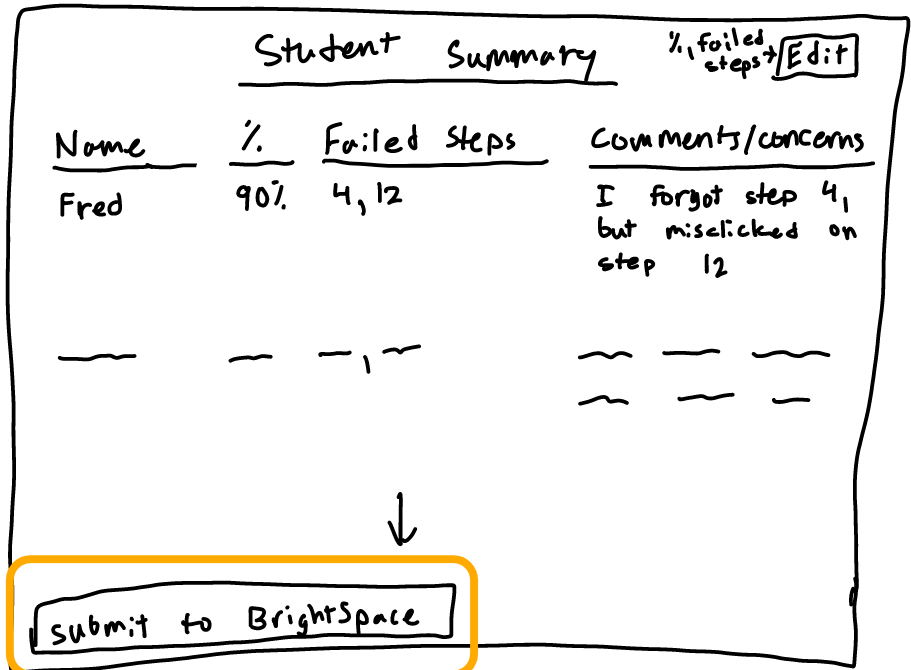 Student Summary
%, failed
steps → Edit
Name % Failed Steps Comments/concerns
Fred 90% 4, 12 I forgot step 4,
but misclicked on
step 12
submit to BrightSpace